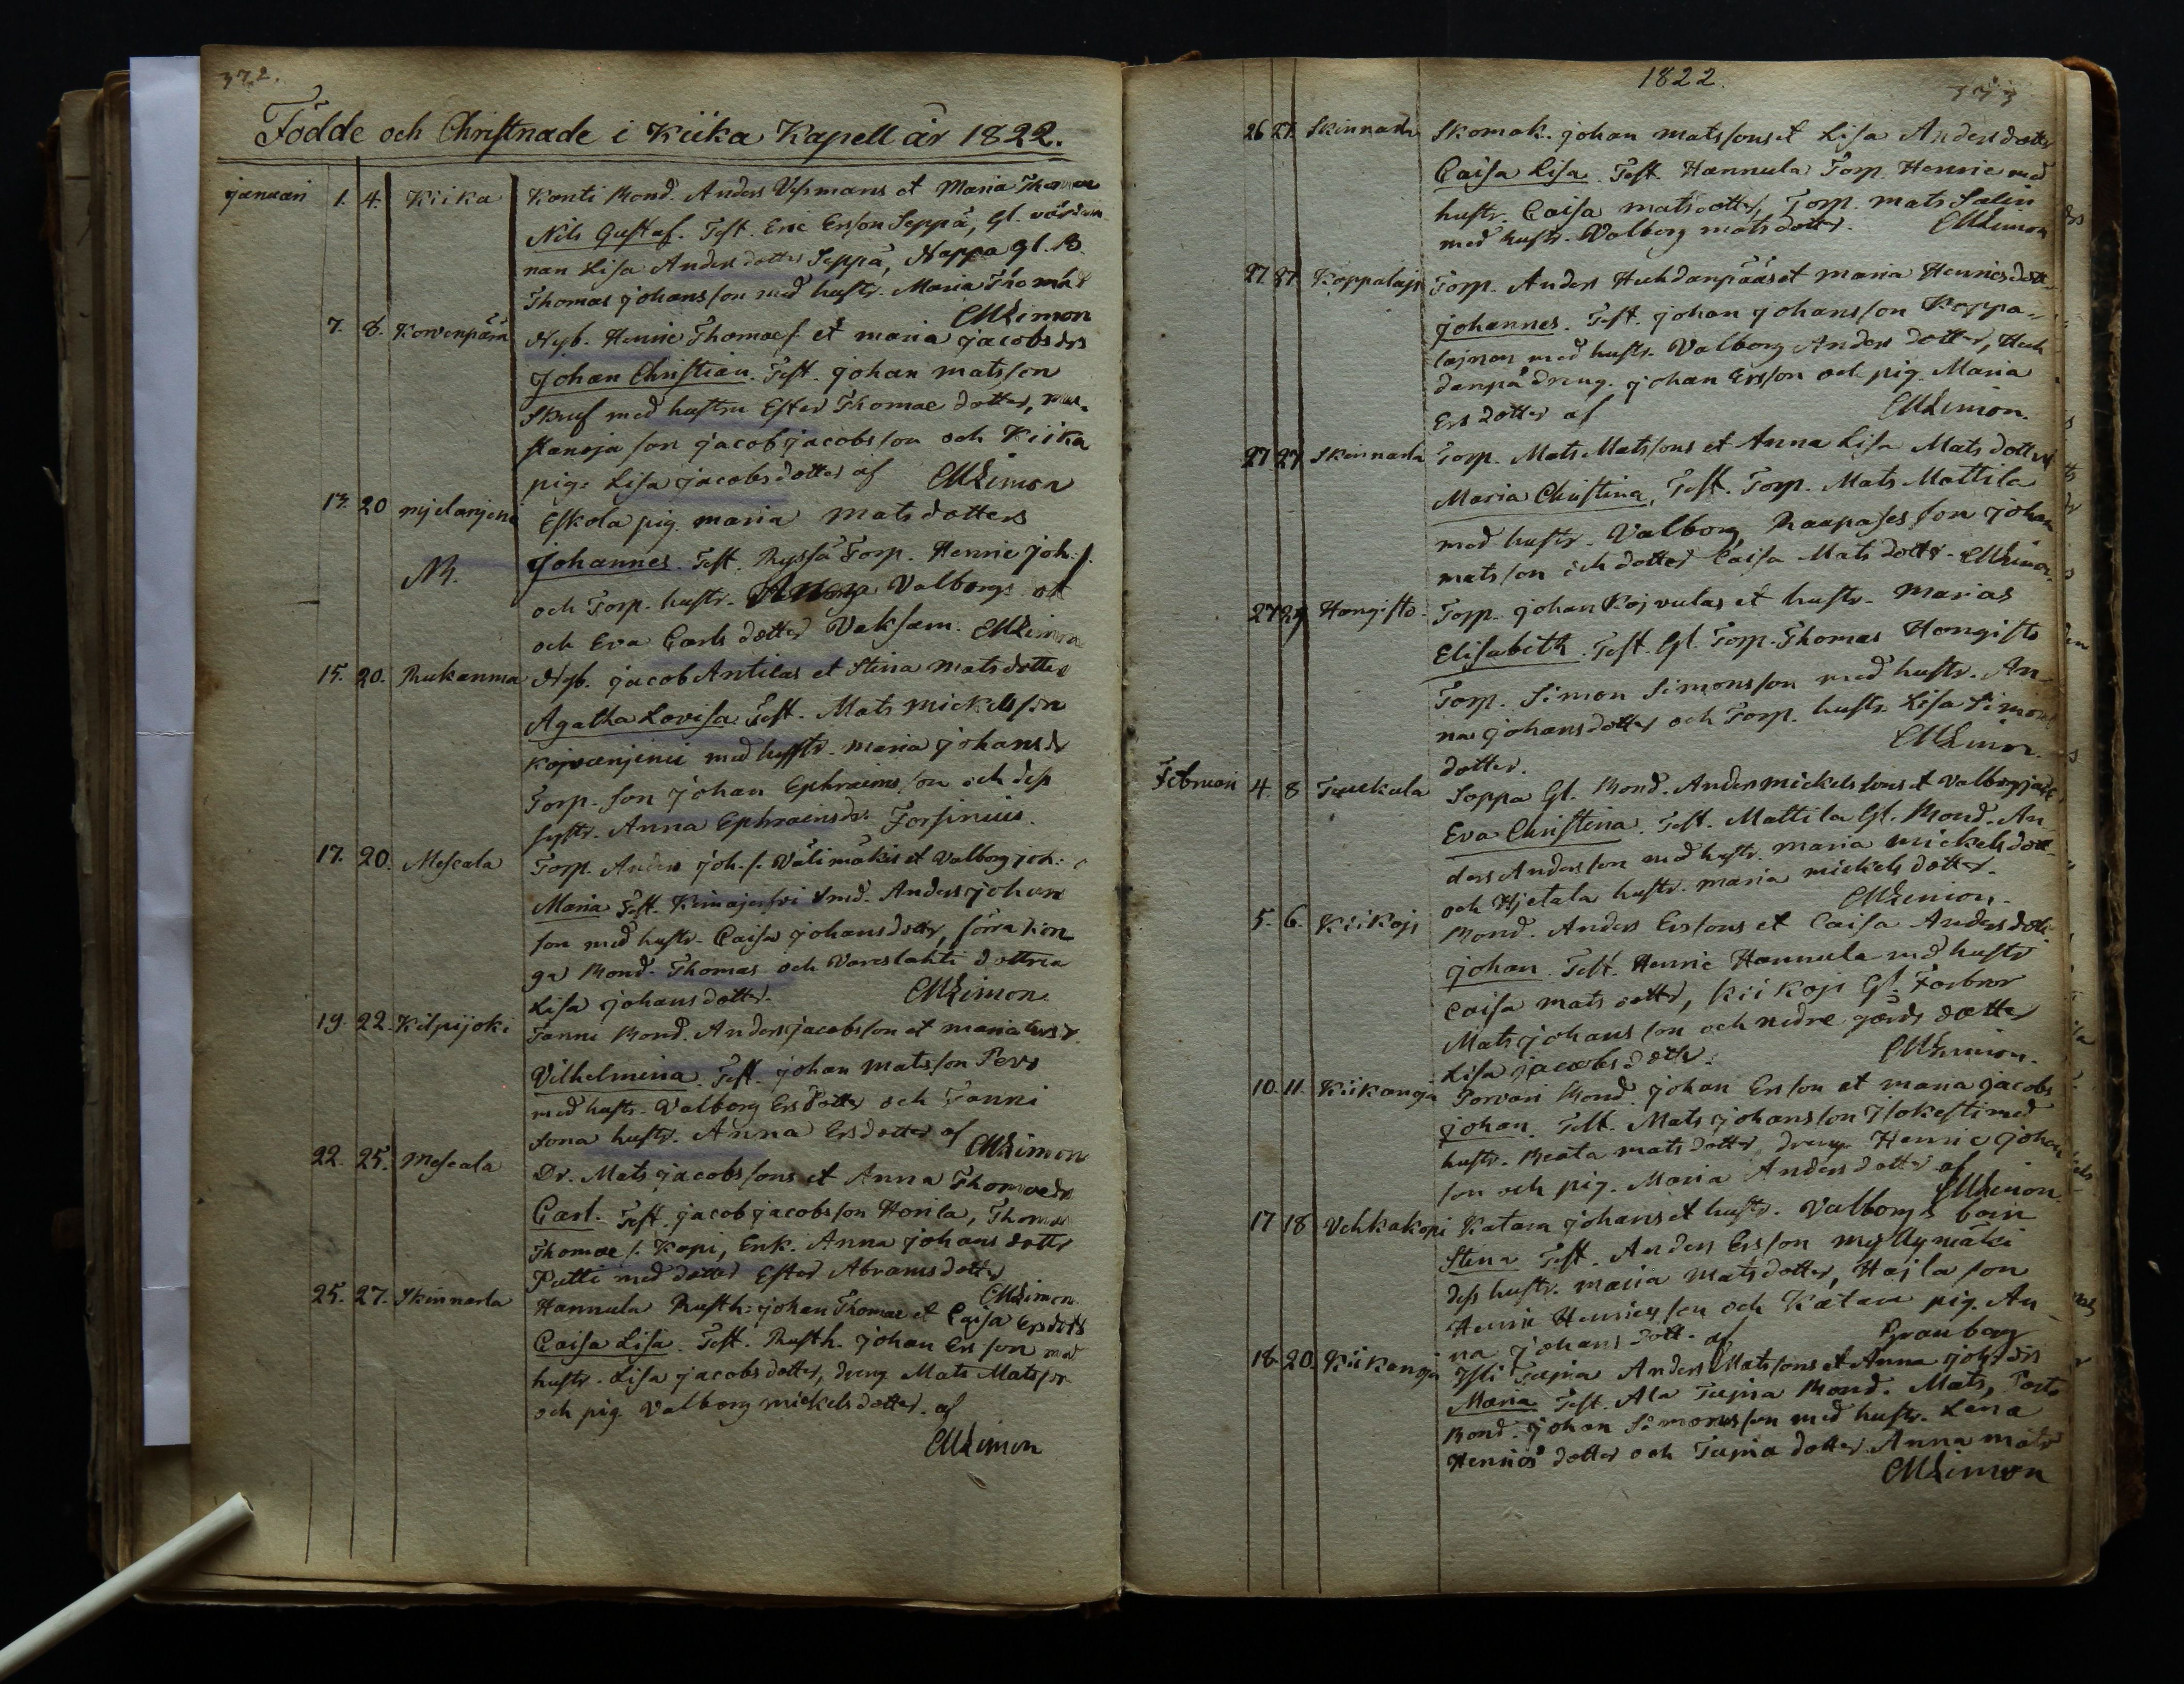 372.
Födde och Christnade i Kiika Kapell år 1822.
januari 1. 4. Kiika Konti Bond. Anders Vesmans et Maria Thomae
Nils Gustaf. Test. Eric Ersson Seppä, Gl.
nan Lisa Anders dotter Seppä, Nappa gl. B.
Thomas johansson med hustr. Maria Thomæ d
CMLimon
7. 8. Korvenpärä Nyb. Henric Thomaes. et maria jacobs drs
Johan Christian. Test. johan matsson
Skruf med hustru Ester Thomae dotter,
son jacob jacobsson och Kiika
pig. Lisa jacobsdotter af CMLimon
13. 20 Eskola pig. maria mats dotters
Johannes. Test. Ryssä Torp. Henric joh: s.
NB. och Torp. hustr. Valborg
och Eva Carls dotter Vaksam. CMLimon
15. 20. Ruhanma Nyb. jacob Antilas et Stina mats dotter
Agatha Lovisa Test. Mats mickelsson
med hustr. maria johans dr
Torp. son johan Ephraims son och dess
systr. Anna Ephraimsdr. Forsinius.
17. 20. Moseala Torp. Anders joh. s. Välimäkis et Valborg joh:
Maria Test. Smed. Anders johan
son med hustr. Caisa johansdotter, förra Kön
ga Bond. Thomas och Vareslahti dottren
Lisa johans dotter. CMLimon
19. 22. Kilpijoki Tanni Bond. Anders jacobsson et maria Ers dr.
Vilhelmina. Test. johan Matsson Pers
med hustr. Valborg Ers dotter och Tanni
sona hustr. Anna Ersdotter af CMLimon
22. 25. Moseala Dr. Mats jacobssons et Anna Thomaedr
Carl. Test. jacob jacobsson Horila, Thomas
Thomae s. Kopi, Enk. Anna johans dotter
Putti med dotter Ester Abramsdotter
CMLimon.
25. 27. Skinnarla Hannula Rusth: johan Thomae et Caisa Ersdotts
Caisa Lisa. Test. Rusth. johan Ersson med
hustr. Lisa jacobs dotter, dreng Mats Matsson
och pig. Valborg mickels dotter. af
CMLimon
1822.
373
26 27. Skinnarla Skomak. johan matssons et Lisa Anders dotter
Caisa Lisa. Test. Hannula Torp. Henric med
hustr. Caisa matsdotter, Torp. mats Salin
med hustr. Valborg matsdotter. CMLimon
27. 27 Koppalaji Torp. Anders Huhdanpääs et maria Henricsdott.
johannes. Test. johan johansson Koppa-
lajnen med hustr. Valborg Anders dotter, Huh
danpä dreng. johan Ersson och pig. Maria
Ers dotter af CMLimon.
27 27 Skinnarla Torp. Mats Matssons et Anna Lisa Mats dotter
Maria Christina. Test. Torp. Mats Mattila
med hustr. Valborg, Raapases son johan
matsson och dotter Caisa Mats dotter. CMLimon.
27 29 Hongisto. Torp. johan Kojvulas et hustr. Marias
Elisabeth. Test. Gl. Torp. Thomas Hongisto
Torp. Simon Simonsson med hustr. An-
na johansdotter och Torp. hustr. Lisa Simons
dotter. CMLimon.
Februari 4. 8 Teuckula Soppa Gl. Bond. Anders mickelssons et Valborg jac.
Eva Christina. Test. Mattila Gl. Bond. An-
ders Andersson med hustr. maria mickelsdott
och Hjetala hustr. maria mickels dotter.
CMLimon.
5. 6. Kiikojs Bond. Anders Erssons et Caisa Anders dott
johan. Test. Henric Hannula med hustr
Caisa mats dotter, Kiikojs Gl. Farbror
Mats johans son och nedre gårds dotter
Lisa jacobs dotter. CMLimon.
10. 11. Kiikanoja Torvari Bond. johan Ersson et maria jacobs
johan. Test. Mats johansson jsokesti med
hustr. Beata mats dotter, dreng. Henric johan
son och pig. Maria Anders dotter af
CMLimon.
17 18 Vehkakopi Katara johans et hustr. Valborgs barn
Stina Test. Anders Ersson myllymäki
dess hustr. maria Mats dotter, Hajla son
Henric Henricsson och Katara pig. An-
na johans dott. af Granberg
18. 20. Kiikanoja Ylli Tupia Anders Matssons et Anna joh. drs
Maria Test. Ala Tupia Bond. Mats,
Bond. johan Simonsson med hustr. Lena
Henrics dotter och Tupia dotter Anna mats
CMLimon